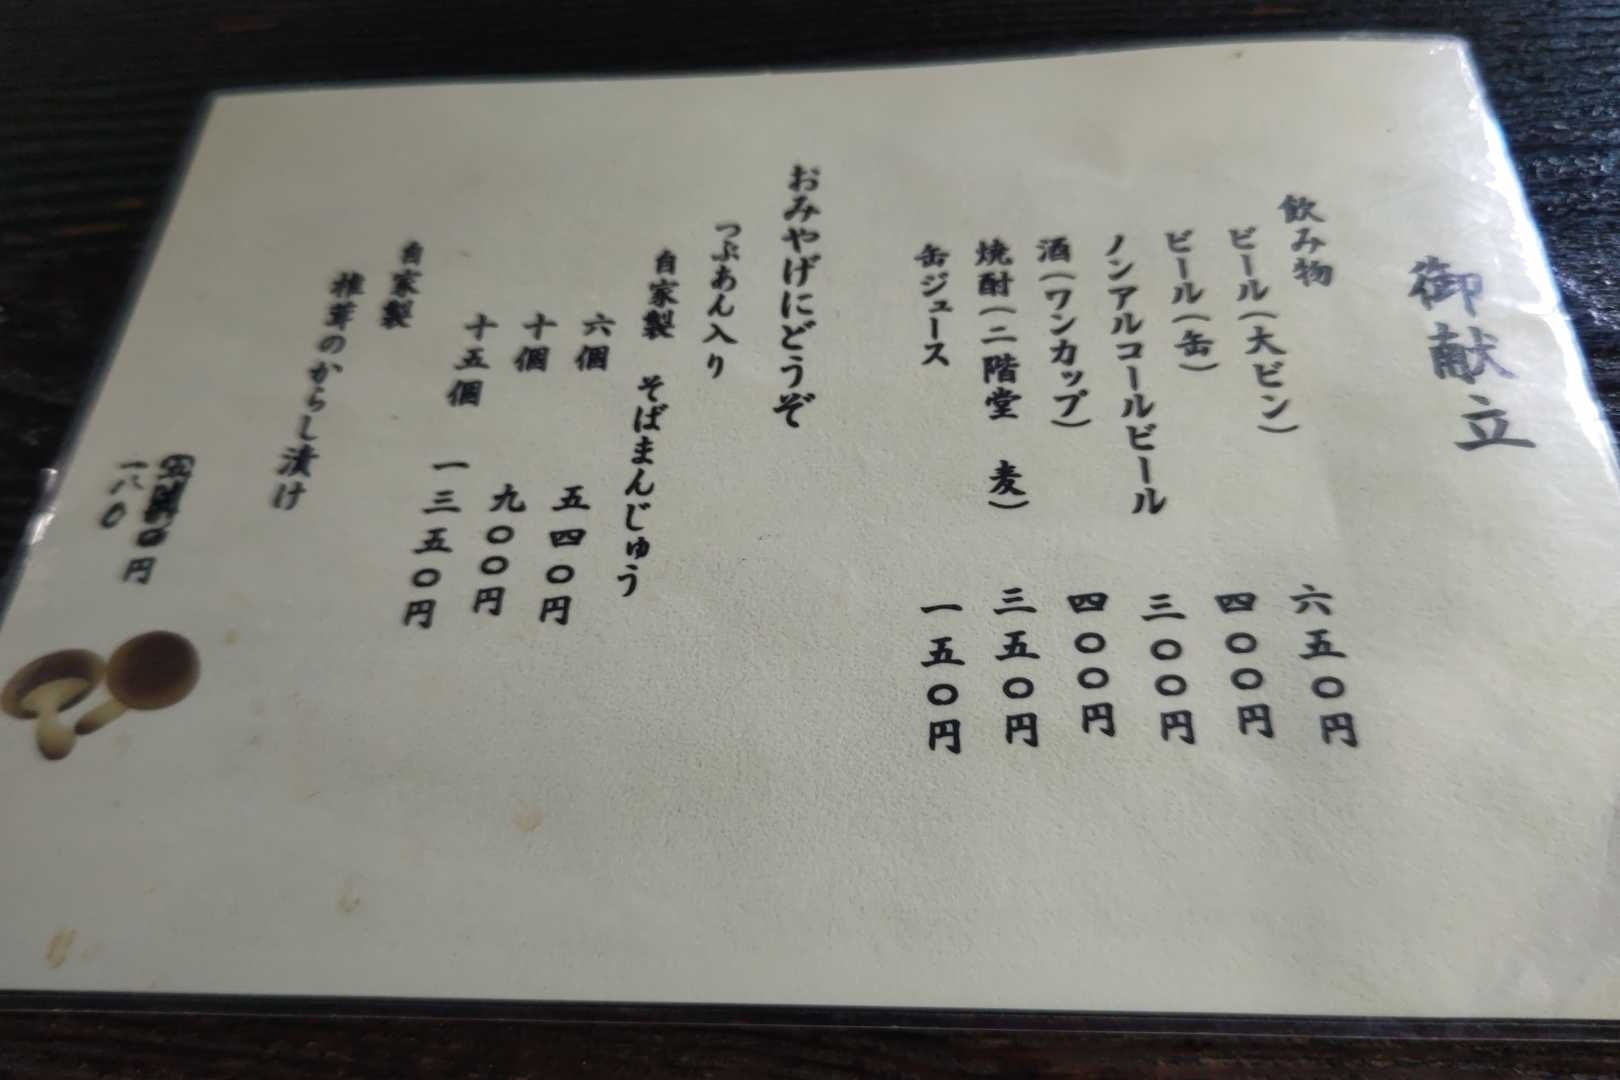 御献立
飲み物
ビール(大ビン) 六五〇円
ビール(缶) 四〇〇円
ノンアルコールビール 三〇〇円
酒(ワンカップ) 四〇〇円
焼酎(二階堂 麦) 三五〇円
缶ジュース 一五〇円
おみやげにどうぞ
つぶあん入り
自家製 そばまんじゅう
六個 五四〇円
十個 九〇〇円
十五個 一三五〇円
自家製
椎茸のからし漬け
円
一八〇